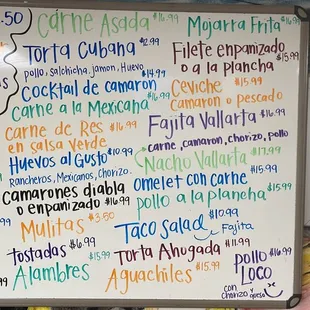 .50
Carne Asada $16.99
Torta Cubana
pollo, salchicha, jamon, Huevo
Cocktail de camaron $14.99
Carne a la Mexicana $16.99
Carne de Res $16.99
en salsa verde
Huevos al Gusto $10.99
Rancheros, Mexicanos, Chorizo.
Camarones diabla
o enpanizado $16.99
Mulitas $3.50
tostadas $6.99
Alambres $15.99
Mojarra Frita $16.99
Filete enpanizado
o a la plancha $15.99
Ceviche $15.99
Camaron o pescado
Fajita Vallarta $16.99
carne, camaron, chorizo, pollo
Nacho Vallarta $17.99
Omelet con carne $15.99
pollo a la plancha $15.99
Taco salad $10.99
Fajita
Torta Ahogada $11.99
Aguachiles $15.99
pollo $16.99
Loco
con
chorizo y queso